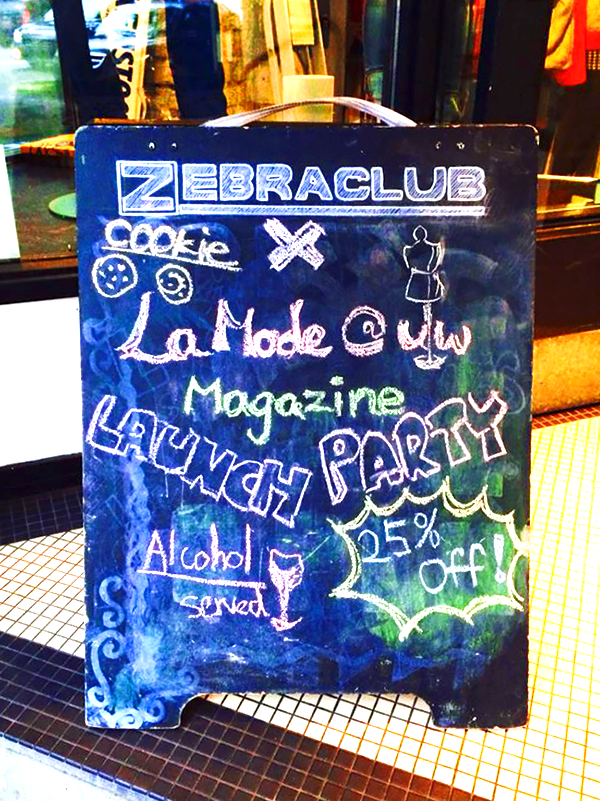 ZEBRACLUB
cookie X
La Mode @ uw
Magazine
LAUNCH PARTY
Alcohol
served
25%
Off!